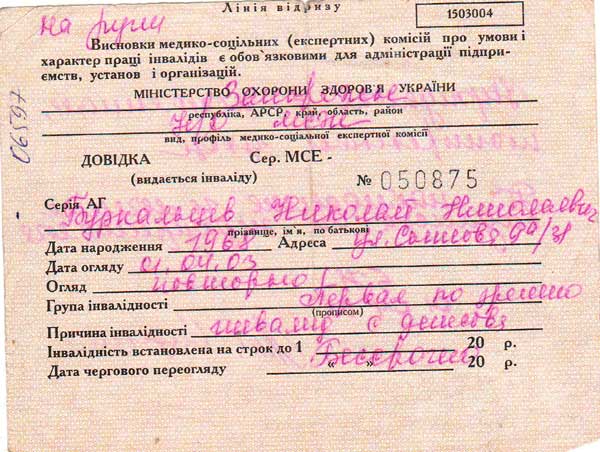 Лінія відризу
1503004
на руки
Висновки медико-соціальних (експертних) комісій про умови і
характер праці інвалідів є обов'язковими для адміністрації підпри-
ємств, установ і організацій.
МІНІСТЕРСТВО ОХОРОНИ ЗДОРОВ'Я УКРАЇНИ
республіка, АРСР, край, область, район
вид, профіль медико-соціальної експертної комісії
06597
ДОВІДКА Сер. МСЕ -
(видається інваліду)
№ 050875
Серія АГ
Николай Николаевич
прізвище, ім'я, по батькові
Дата народження 1968 Адреса ул.
Дата огляду 01.04.03
Огляд повторно
Група інвалідності Первая по зрению
(прописом)
Причина інвалідності инвалид с детства
Інвалідність встановлена на строк до 1 Бессрочно 20 р.
Дата чергового переогляду " " 20 р.